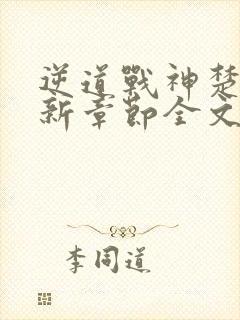 逆道戰神楚
新章節全文
李同道